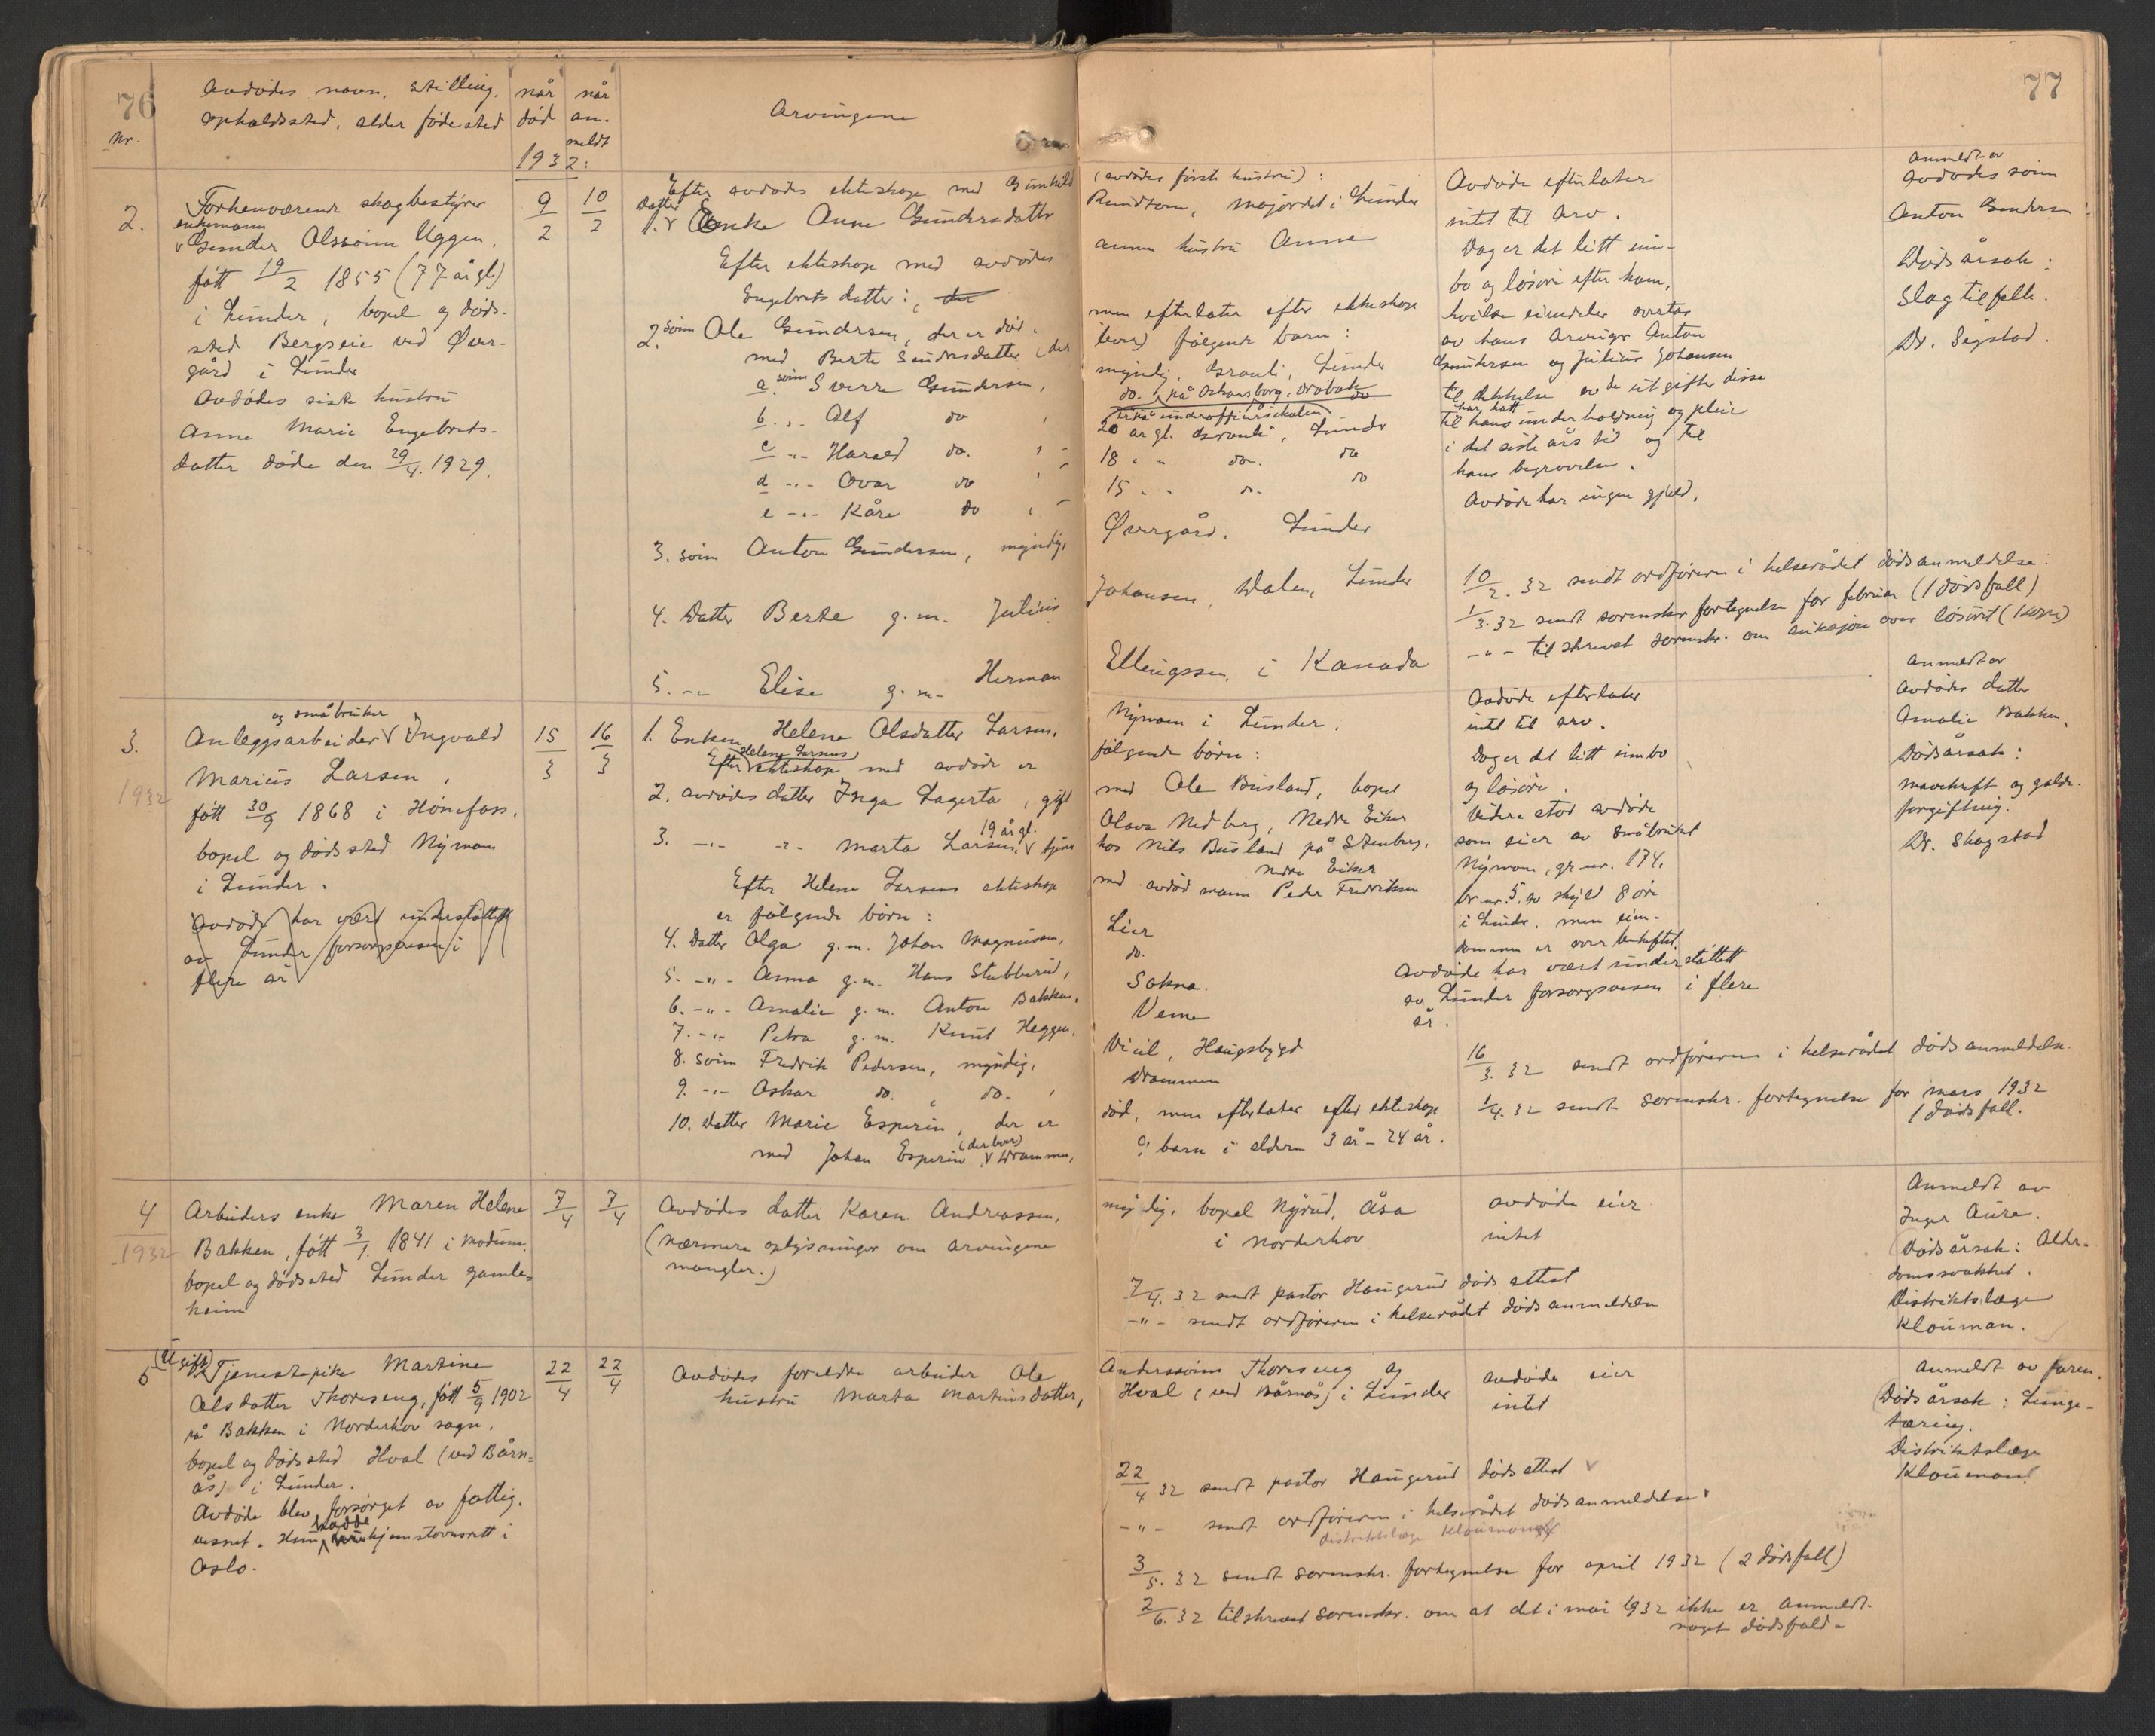 76
Nr.
Avdødes navn, stilling,
opholdssted, alder fødested
når død
når an-meldt
1932:
Arvingene
77
2.
Forhenværende skogbestyrer
enkemann
Gunder Olssønn Uggen,
født 19/2 1855 (77 år gl)
i Lunder, bopel og døds-
sted Bergseie ved Øver-
gård i Lunder
Avdødes siste hustru
Anne Marie Engebrets-
datter døde den 29/4. 1929.
9/2
10/2
Efter avdødes ekteskap med Gunhild (avdødes første hustru):
Datter
1. Enke Anne Gundersdatter Rundtom, majordet i Lunder
Efter ekteskap med avdødes annen hustru Anne
Engebretsdatter:
2. sønn Ole Gundersen, der er død, men efterlater efter ekteskap
med Berte Gundersdatter (der lever) følgende barn:
a sønn Sverre Gundersen, myndig, Granli, Lunder
b. -"- Alf do, do. på Oskarsborg, Drøbak do.
er på underoffiersskolen
c -"- Harald do. 20 år gl. Granli, Lunder
d -"- Ovar do 18 " " do. do
e -"- Kåre do 15 " " do. do
3. sønn Anton Gundersen, myndig, Øvergård, Lunder
4. Datter Berte g.m. Julius Johansen, Dalen, Lunder
5. -"- Elise g.m. Herman Ellingssen, i Kanada
Avdøde efterlater
intet til arv.
Dog er det litt inn-
bo og løsøre efter ham,
hvilke eiendeler overtas
av hans arvinger Anton
Gundersen og Julius Johansen
til dekkelse av de utgifter disse
har hatt
til hans underholdning og pleie
i det siste års tid og til
hans begravelse.
Avdøde har ingen gjeld.
10/2. 32 sendt ordføreren i helserådet dødsanmeldelse.
1/3. 32 sendt sorenskr fortegnelse for februar (1 dødsfall)
-"- tilskrevet sorenskr. om auksjon over løsøret (Kopi)
Anmeldt av
avdødes sønn
Anton Gundersen
Dødsårsak:
Slagtilfelle.
Dr. Segstad.
3.
1932
og småbruker
Anleggsarbeider Ingvald
Marius Larsen,
født 30/9 1868 i Hønefoss.
bopel og dødssted Nymoen
i Lunder.
Avdøde har vært understøttet
av Lunder forsorgsvesen i
flere år
15/3
16/3
1. Enken Helene Olsdatter Larsen, Nymoen i Lunder.
Helene Larsens
Efter ekteskap med avdøde er følgende børn:
2. avdødes datter Inga Lagerta, gift med Ole Busland, bopel
Olava Nedberg, Nedre Eiker
19 år gl.
3. -"- -"- Marta Larsen, tjener hos Nils Busland på Stenberg,
Nedre Eiker
Efter Helene Larsens ekteskap med avdød mann Peder Fredriksen
er følgende børn:
4. Datter Olga g.m. Johan Magnussen, Lier
5. -"- Anna g.m. Hans Stubberud, do.
6. -"- Amalie g.m. Anton Bakken, Sokna.
7. -"- Petra g.m. Knut Heggen, Veme
8. sønn Fredrik Pedersen, myndig, Viul, Haugsbygd
9. -"- Oskar do. , do. , Drammen
10. Datter Marie Esperin, der er død, men efterlater efter ekteskap
(der bor)
med Johan Esperin Drammen, 9 barn i alderen 3 år - 24 år.
Avdøde efterlater
intet til arv.
Dog er det litt innbo
og løsøre.
Videre stod avdøde
som eier av småbruket
Nymoen, gr. nr. 174,
br. nr. 5. av skyld 8 øre
i Lunder, men eien-
dommen er overbeheftet.
Avdøde har vært understøttet
av Lunder forsorgsvesen i flere
år.
16/3. 32 sendt ordføreren i helserådet dødsanmeldelse.
1/4. 32 sendt sorenskr. fortegnelse for mars 1932
1 dødsfall.
Anmeldt av
avdødes datter
Amalie Bakken.
Dødsårsak:
mavekreft og galde-
forgiftning.
Dr. Skagstad
4
1932
Arbeiders enke Maren Helene
Bakken, født 3/1. 1841 i Modum,
bopel og dødssted Lunder gamle-
heim
7/4
7/4
Avdødes datter Karen Andreassen, myndig, bopel Nyrud, Åsa
(nærmere oplysninger om arvingene i Norderhov
mangler.)
avdøde eier
intet
7/4. 32 sendt pastor Haugerud dødsattest
-"- sendt ordføreren i helserådet dødsanmeldelse
Anmeldt av
Inger Aure.
(Dødsårsak: Alder-
domssvakhet.
Distriktslæge
Klouman.
5
(Ugift)
Tjenestepike Martine
Olsdatter Thoreseng, født 5/9 1902
på Bakken i Norderhov sogn.
bopel og dødssted Hval (ved Bårn-
ås) i Lunder.
Avdøde blev forsørget av fattig-
vesnet. Hun hadde hjemstavnsrett i
Oslo.
22/4
22/4
Avdødes foreldre arbeider Ole Anderssønn Thoreseng og
hustru Marta Martinsdatter, Hval (ved Bårnås) i Lunder
avdøde eier
intet
22/4 32 sendt pastor Haugerud dødsattest
-"- sendt ordføreren i helserådet dødsanmeldelse
distriktslæge Klouman
3/5. 32 sendt sorenskr. fortegnelse for april 1932 (2 dødsfall)
2/6. 32 tilskrevet sorenskr. om at det i mai 1932 ikke er anmeldt
noget dødsfald.
Anmeldt av faren.
(Dødsårsak: Lunge-
tæring.
Distriktslæge
Klouman)